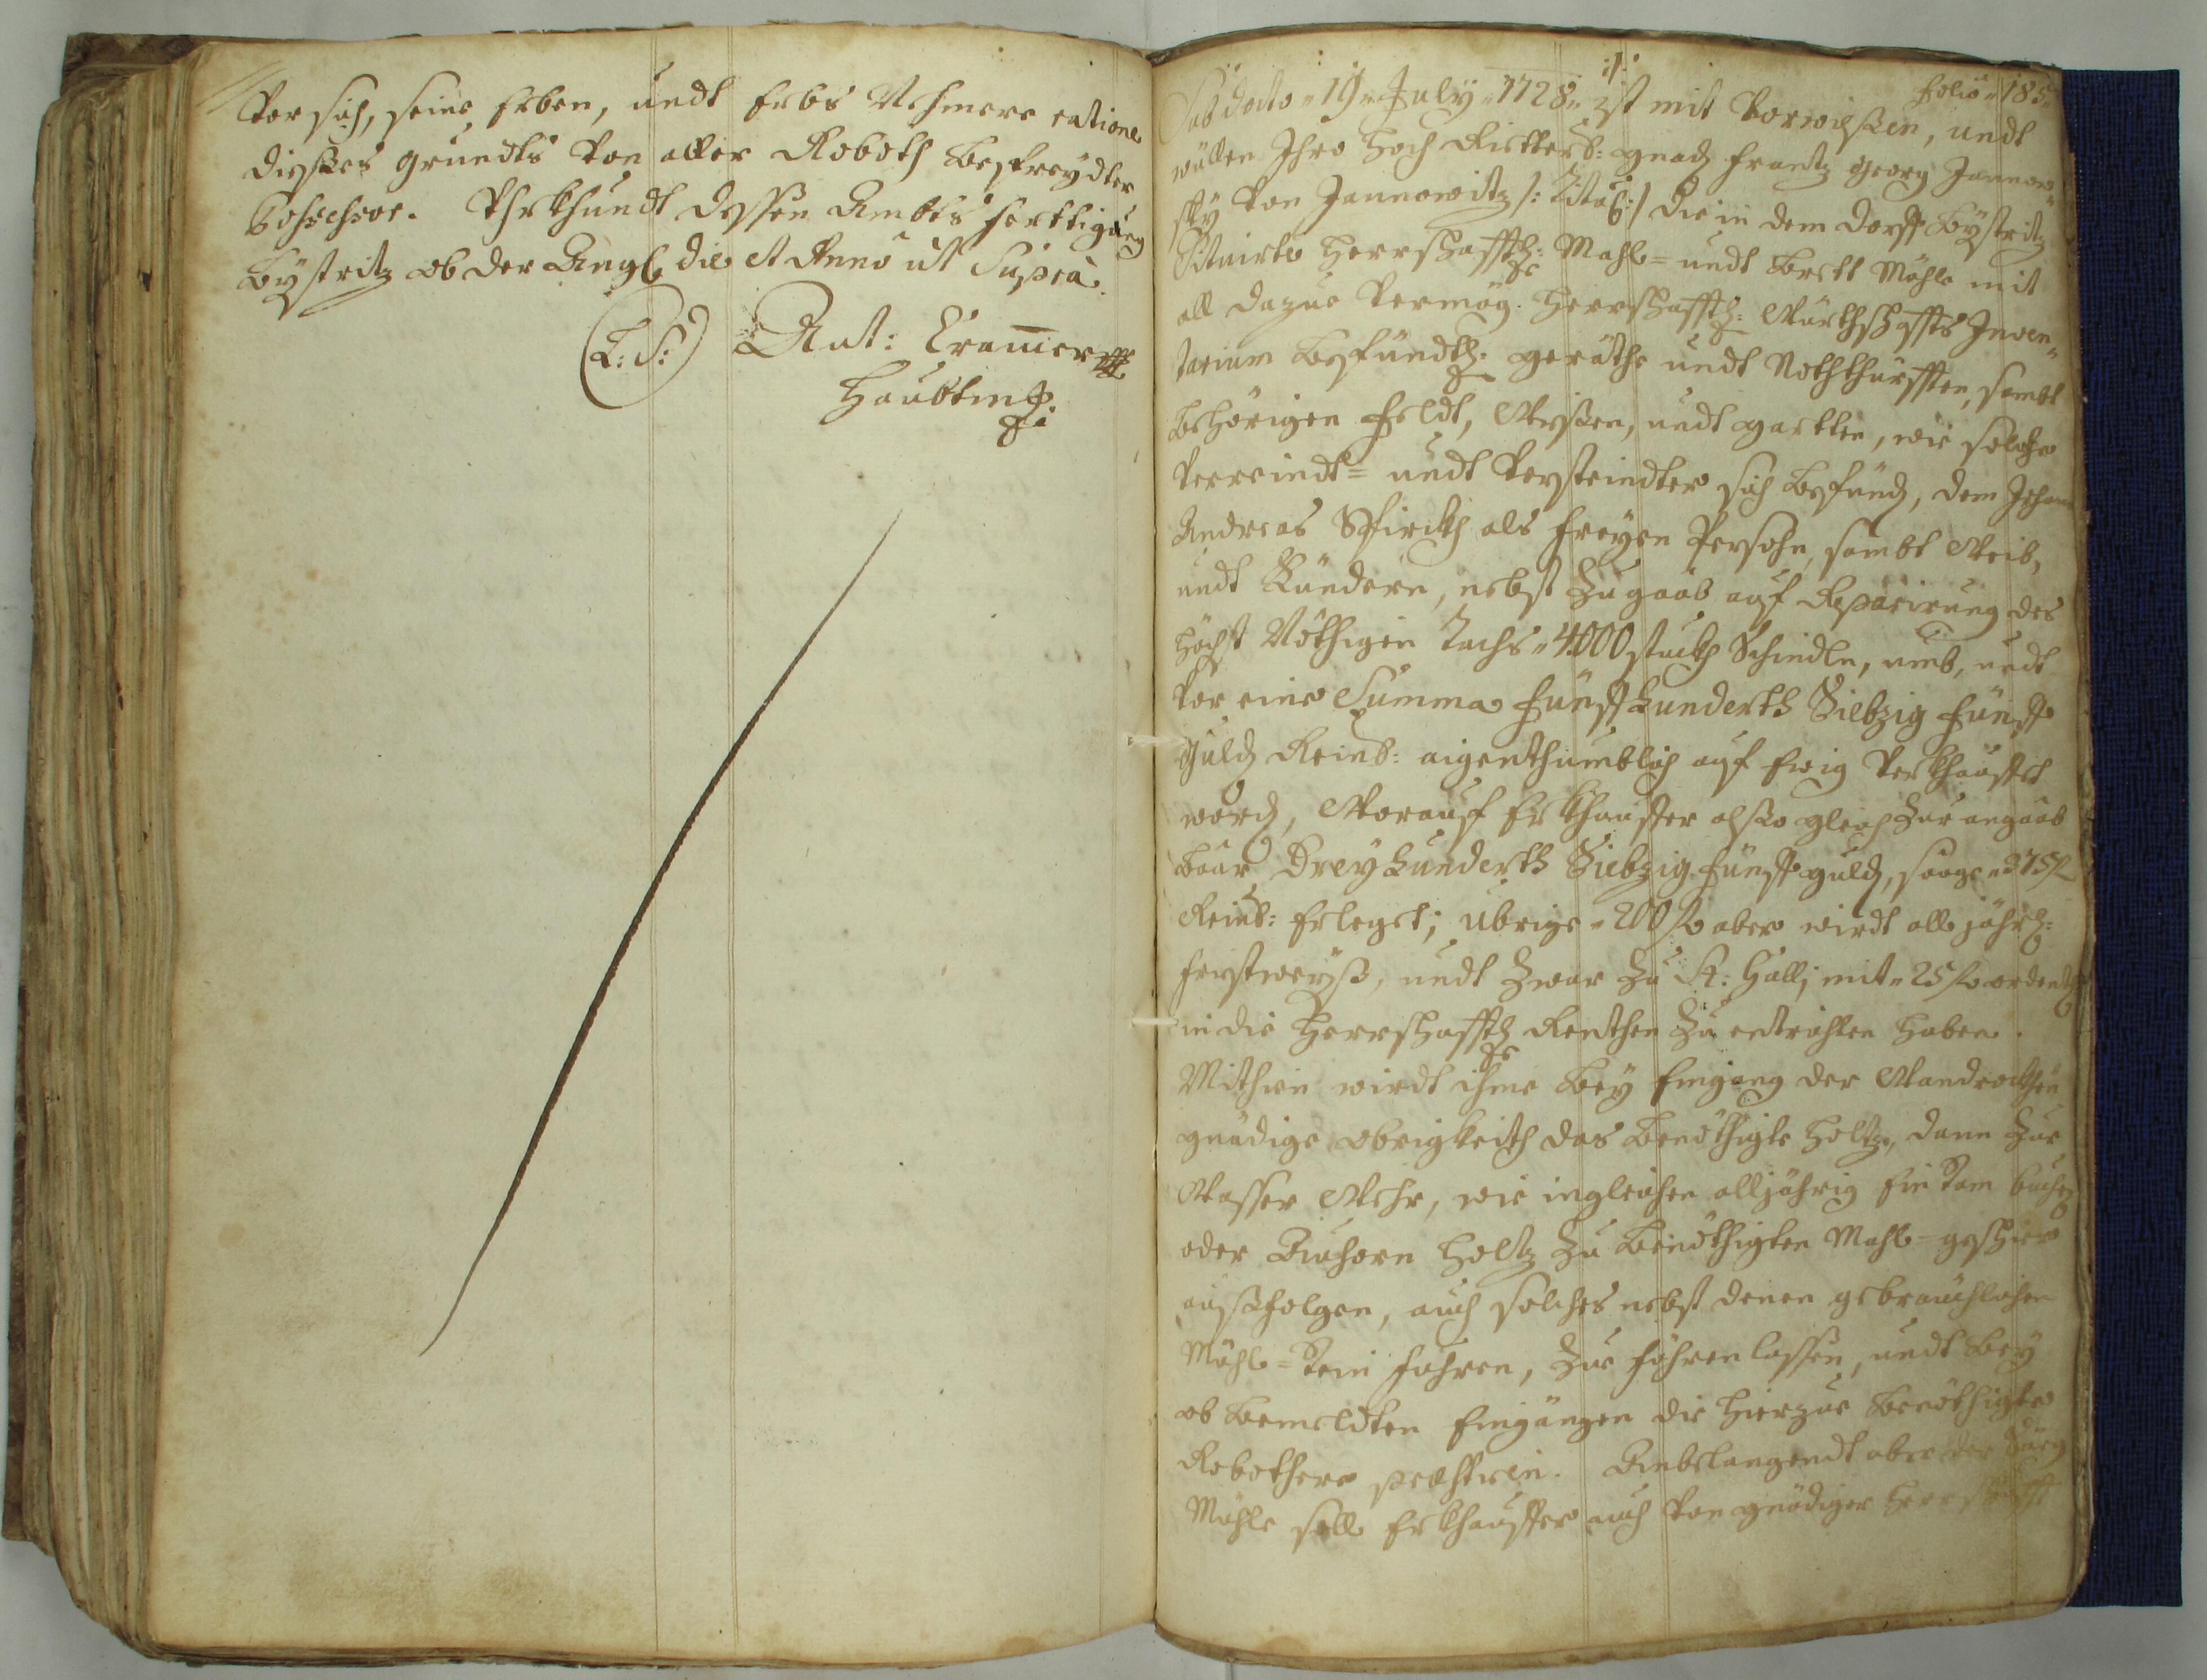 Vor sich, seine Erben, undt Erbs Nehmere ratione
diesses grundts von aller Roboth Befreydter
Possessor. Uhrkhundt dessen Ambts Ferttigung
Bÿstritz ob der Angl die et Anno ut Supra.
(L: S:) Ant: Cramer
Haubtm:
Folio 185.
Sub dato 19 July 1728 ist mit Vorwissen, undt
willen Ihro Hoch Ritterl: gnad Frantz Georg Jannow
sky von Jannowitz /: Titul :/ die in dem dorff Bÿstritz
Situirte Herrschafftl: Mahl= undt Brett Mühle mit
all dazue vermög. Herrschafftl: Würthschaffts Inven
tarium Befundl. geräthe undt Noththurfften, sambt
Behörigen Feldt, Wiesen, undt gartten, wie solche
verreindt= undt versteindter sich Befündt, dem Johann
Andreas als Freyen Persohn, sambt Weib,
undt Kündern, nebst Zugaab auf Reparirung des
höchst Nöthigen Tachs 4000 stuckh Schindln, umb, undt
vor eine Summa Fünff Hunderth Siebzig Fünff
Guld Reinl: aigenthumblich auf Ewig Verkhaufft
word, Worauf Erkhauffer alsso gleich zur angaab
Baar Drey Hunderth Siebzig Fünff guld, sage 375 f
Reinl: Erlegt; übrige 200 f aber wirdt all jährl:
Fristweiß, undt zwar zu St: Galli mit 25 f ordentl
in die Herrschafftl Renthen zu entrichten haben.
Mithin wirdt ihme Bey Eingang der
gnädige obrigkeith das Benöthigte Holtz, dann zur
Wasser Wehr, wie ingleichen alljährig Ein Tom Buchen
oder Holtz zu Benöthigten Mahl=geschier
außfolgen, auch solches nebst denen gebräuchlichen
Mühl=Stein fuhren, zue führen lassen, undt Bey
ob Bemeldten Eingängen die hierzue Benöthigte
Robother. Anbelangendt aber
Mühle soll Erkhauffer auch von gnädiger Herrschafft